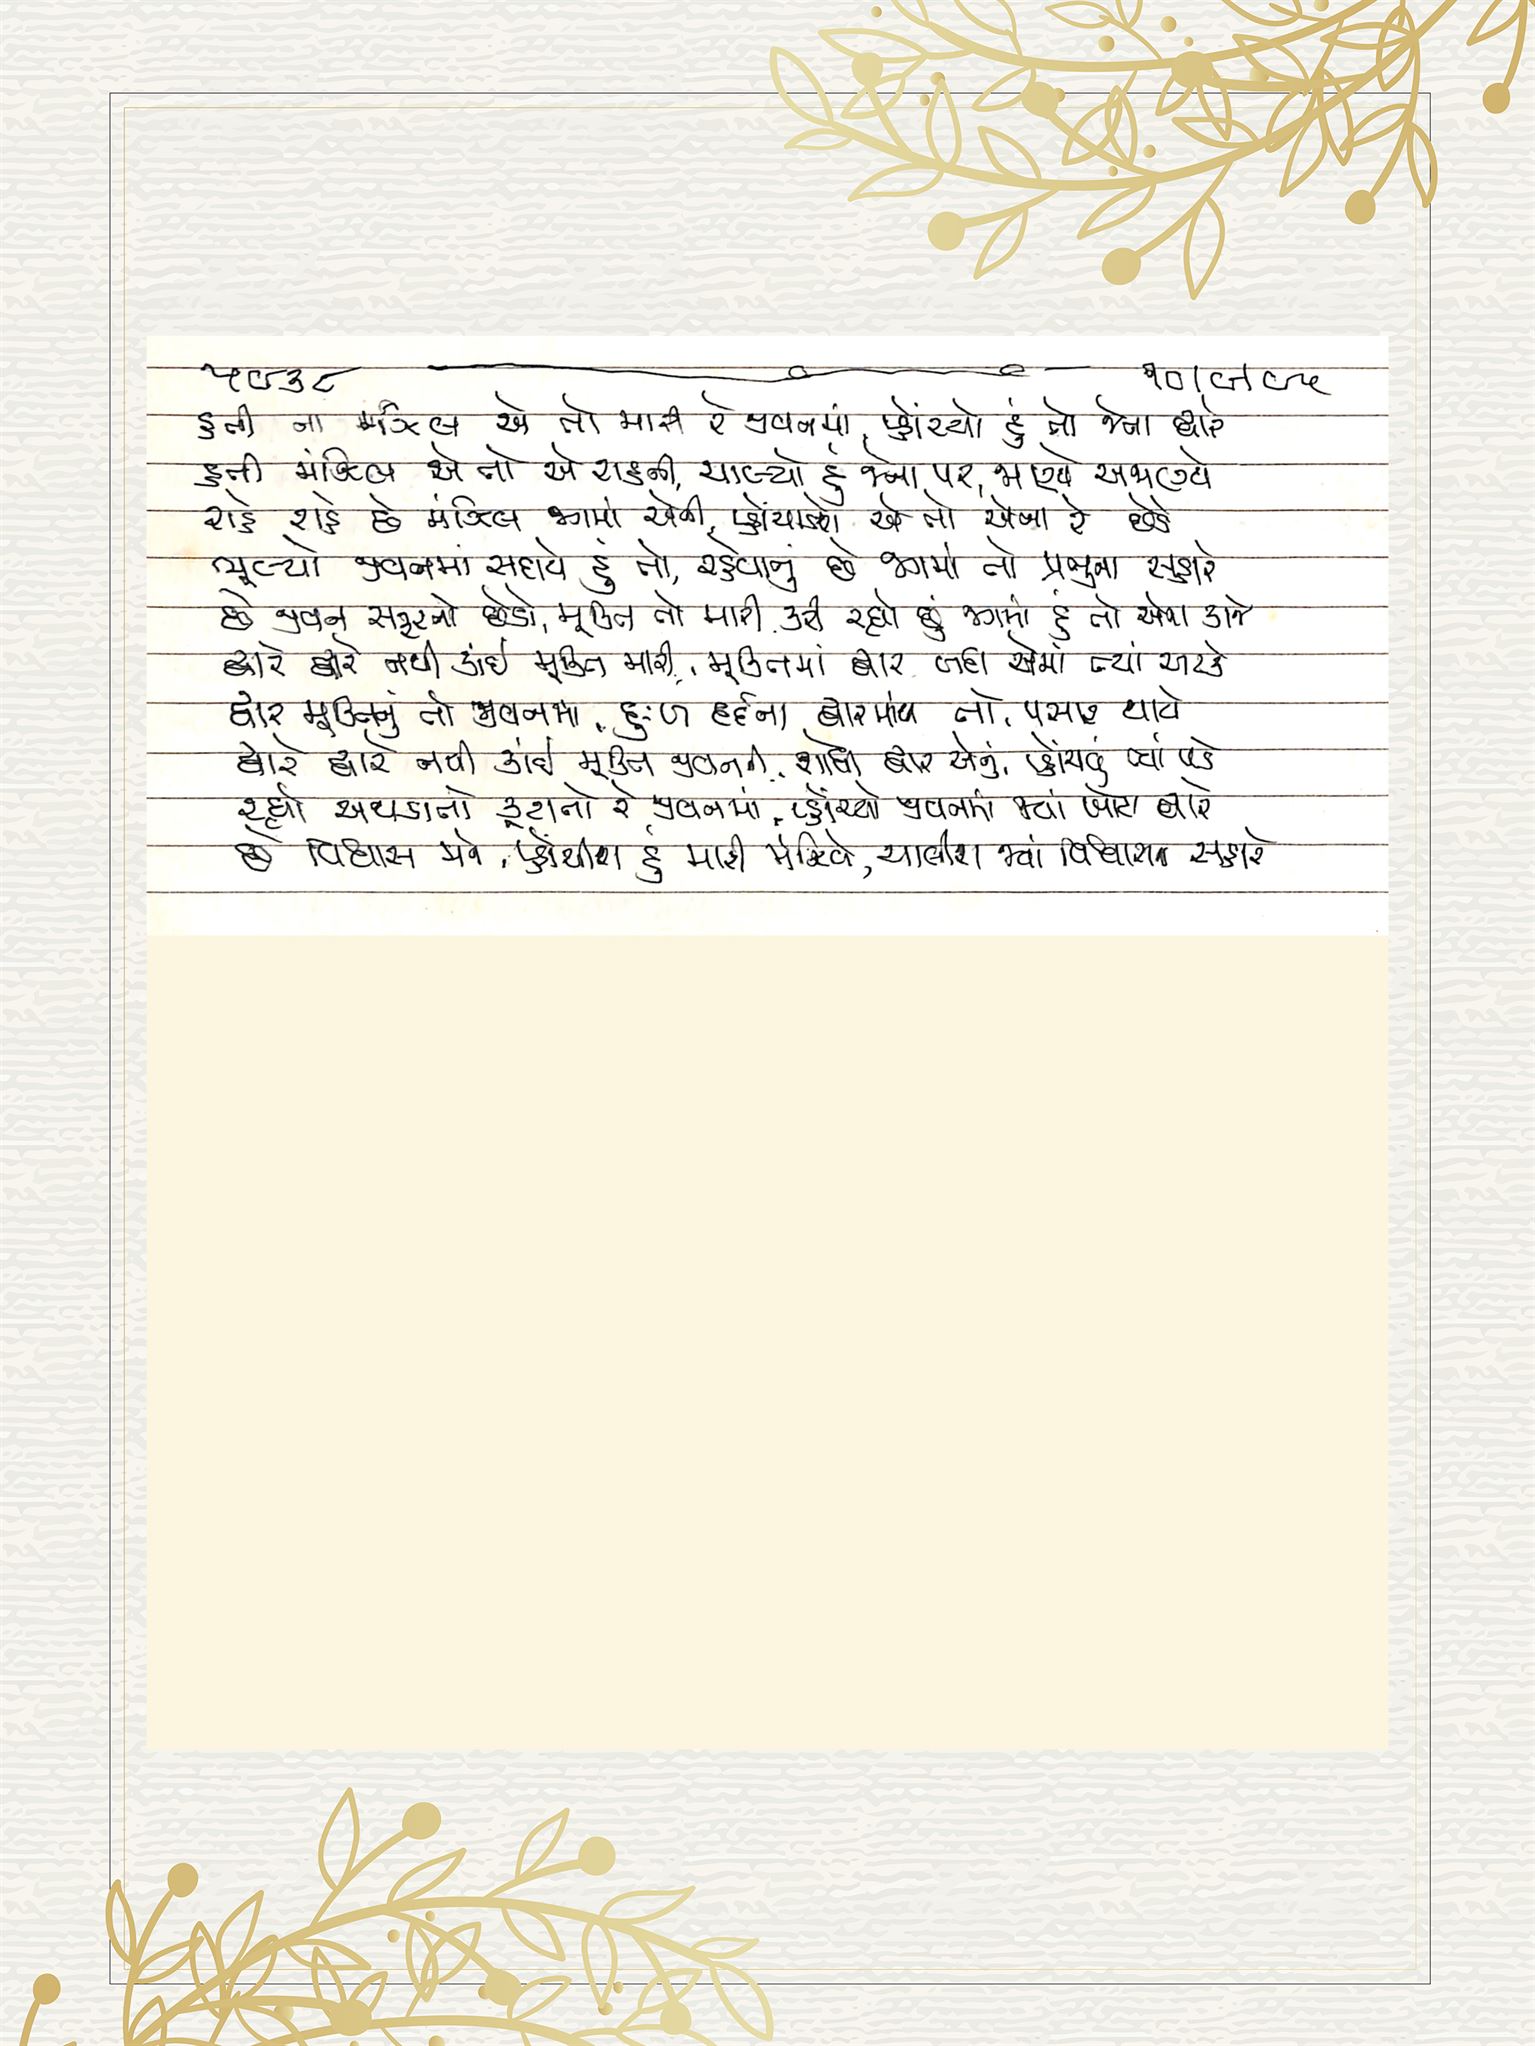 ૫૯૩૮ ૧૦/૯/૯૫
હતી ના મંઝિલ એ તો મારી રે જીવનમાં, પ્હોંચ્યો હું તો જેના દ્વારે
હતી મંઝિલ એ તો એ રાહની, ચાલ્યો હું જેના પર, જાણ્યે અજાણ્યે
રાહે રાહે છે મંઝિલ જગમાં એની, પ્હોંચાડશે એ તો એના રે છેડે
ભૂલ્યો જીવનમાં સદાયે હું તો, રહેવાનું છે જગમાં તો પ્રભુના સહારે
છે જીવન સફરનો છેડો, મુક્તિ તો મારી, કરી રહ્યો છું જગમાં હું તો એના કાજે
દ્વારે દ્વારે નથી કાંઈ મુક્તિ મારી, મુક્તિમાં દ્વાર નહીં એમાં ત્યાં અટકે
દ્વાર મુક્તિનું તો જીવનમાં, દુઃખ દર્દના દ્વારમાંથી તો પસાર થાયે
દ્વારે દ્વારે નથી કાંઈ મુક્તિ જીવનની, શોધી દ્વાર એનું, પ્હોંચવું ત્યાં પડે
રહ્યો અથડાતો કૂટાતો રે જીવનમાં, પ્હોંચ્યો જીવનમાં જ્યાં ખોટા દ્વારે
છે વિશ્વાસ મને, પ્હોંચીશ હું મારી મંઝિલે, ચાલીશ જ્યાં વિશ્વાસના સહારે